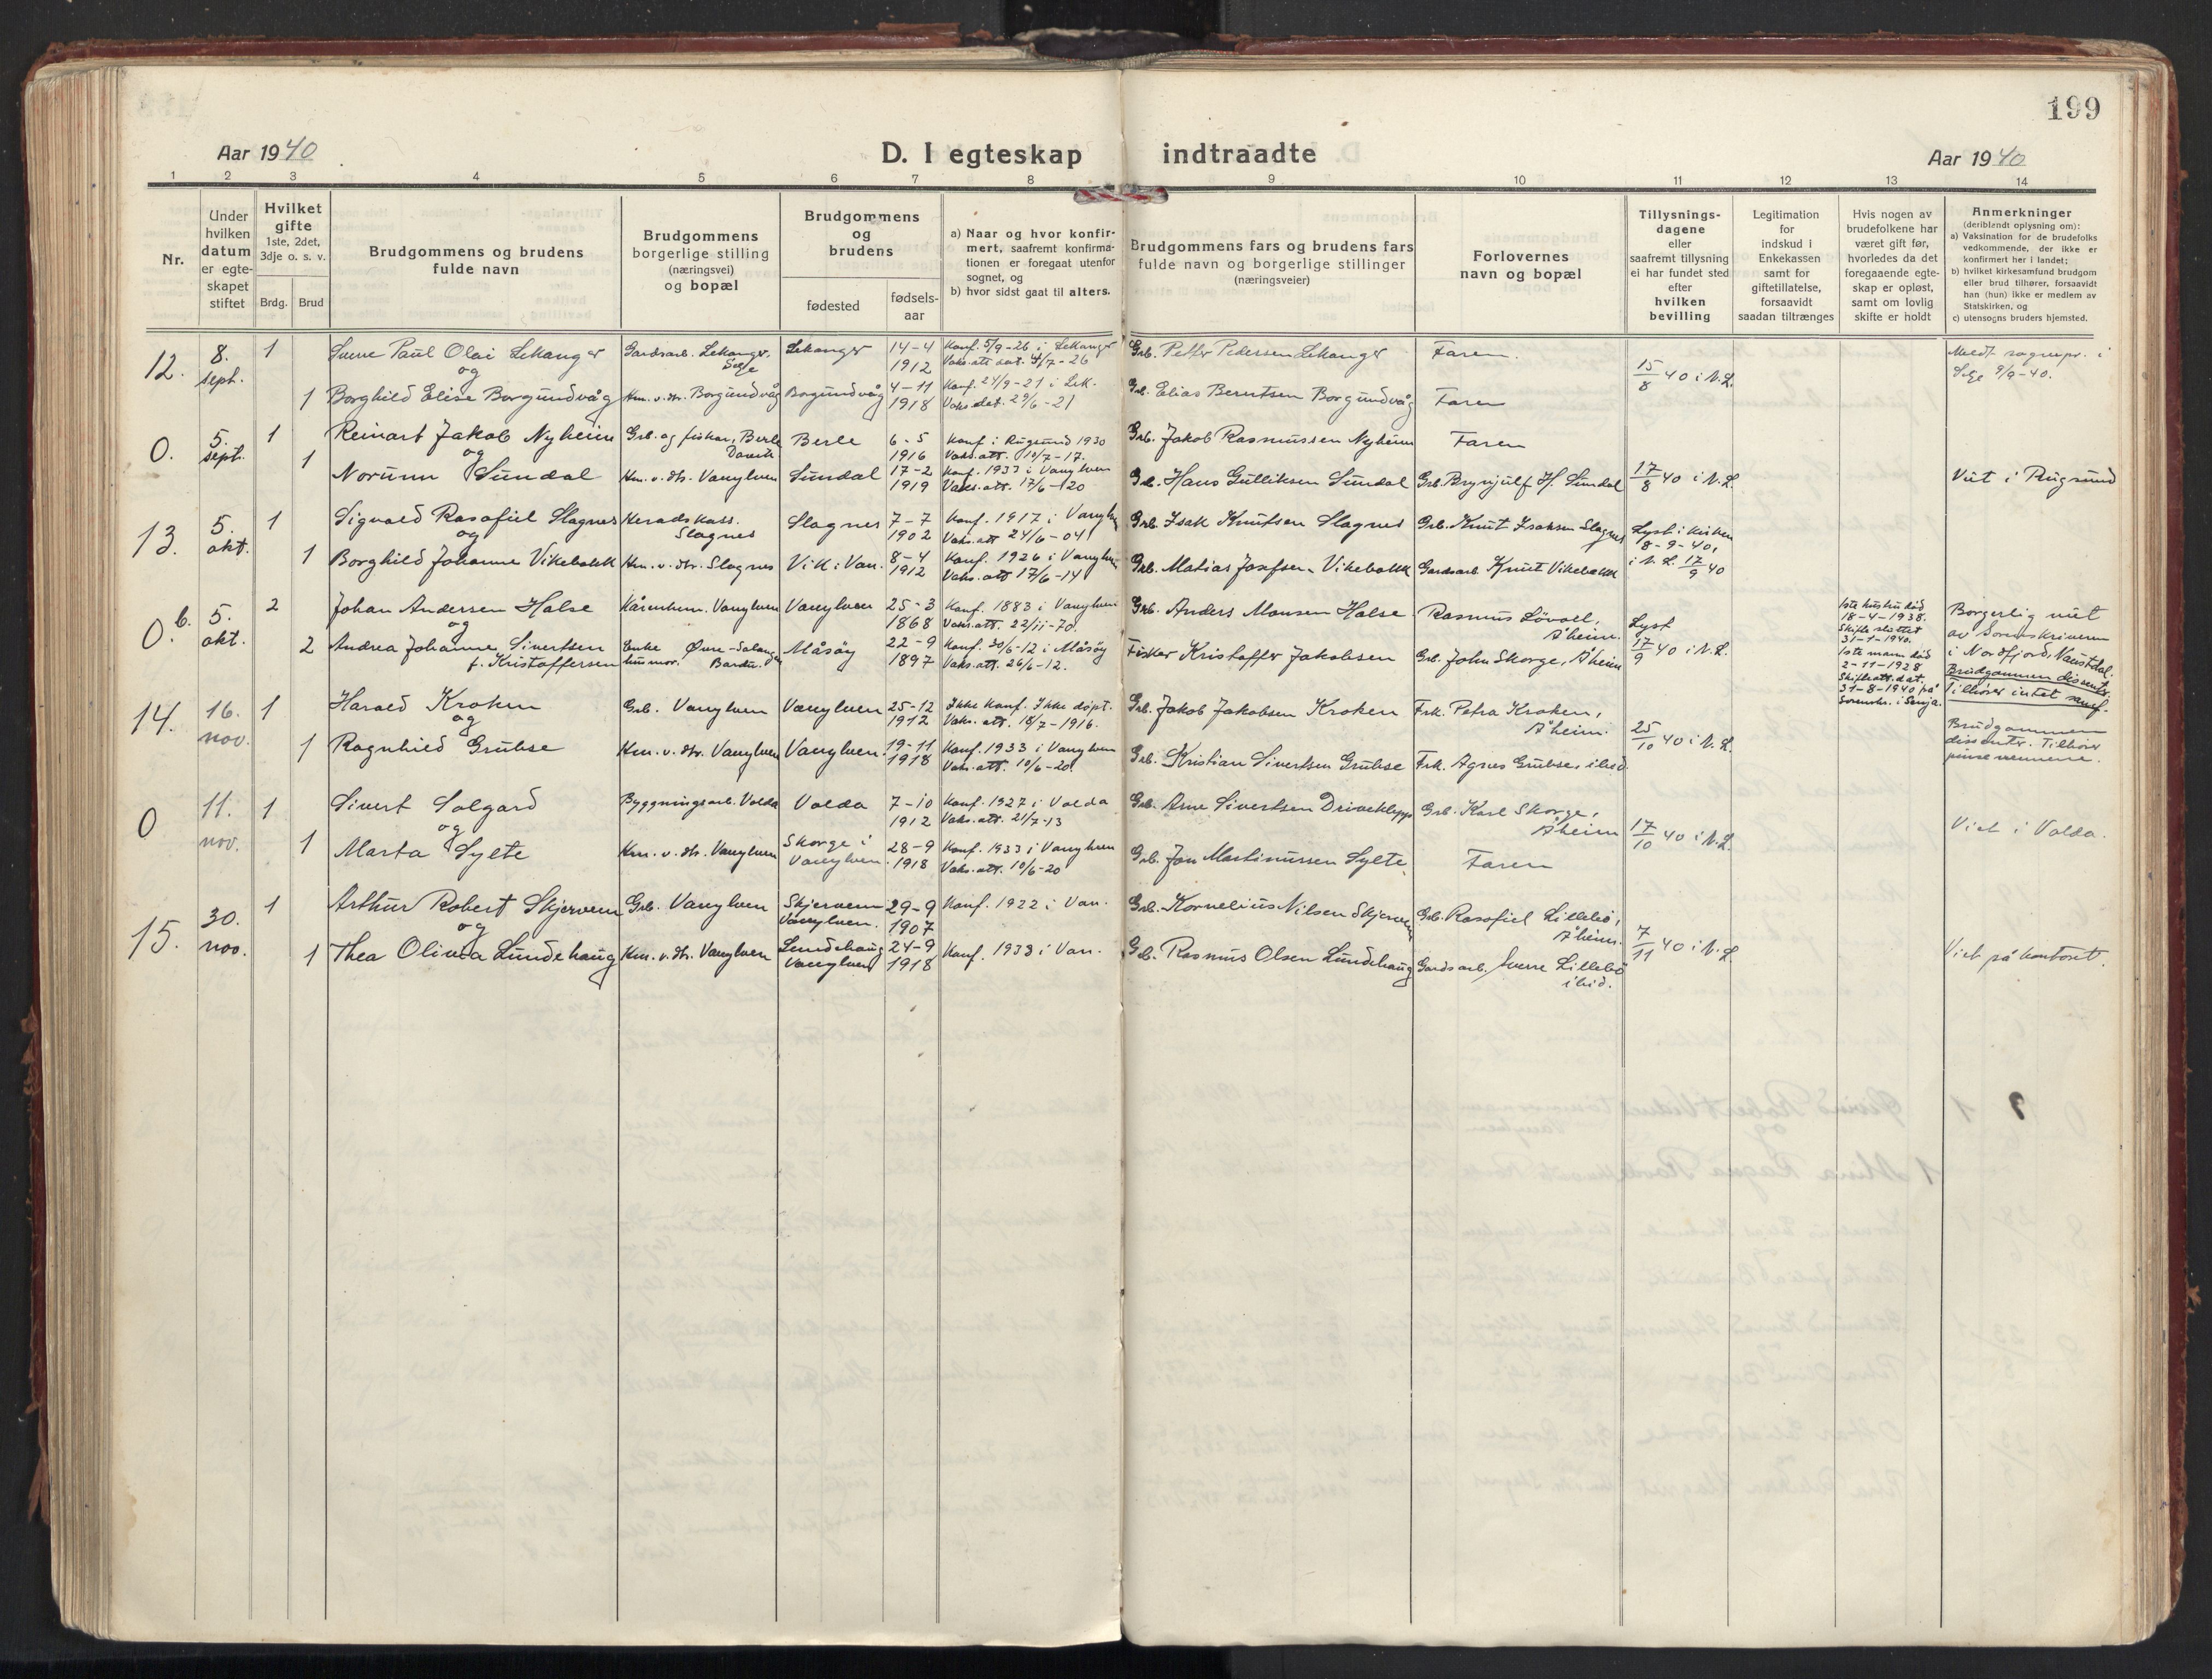 199
Aar 1940
D. I egteskap indtraadte
Aar 1940
1 2 3 4 5 6 7 8 9 10 11 12 13 14
Nr.
Under hvilken datum er egteskapet stiftet
Hvilket gifte
1ste, 2det, 3dje o. s. v.
Brdg. Brud
Brudgommens og brudens fulde navn
Brudgommens borgerlige stilling (næringsvei) og bopæl
Brudgommens og brudens
fødested
fødselsaar
a) Naar og hvor konfirmert, saafremt konfirmationen er foregaat utenfor sognet, og
b) hvor sidst gaat til alters.
Brudgommens fars og brudens fars fulde navn og borgerlige stillinger (næringsveier)
Forlovernes navn og bopæl
Tillysningsdagene eller saafremt tillysning ei har fundet sted efter hvilken bevilling
Legitimation for indskud i Enkekassen samt for giftetillatelse, forsaavidt saadan tiltrænges
Hvis nogen av brudefolkene har været gift før, hvorledes da det foregaaende egteskap er opløst, samt om lovlig skifte er holdt
Anmerkninger
(deriblendt oplysning om):
a) Vaksination for de brudefolks vedkommende, der ikke er konfirmert her i landet;
b) hvilket kirkesamfund brudgom eller brud tilhører, forsaavidt han (hun) ikke er medlem av Statskirken, og
c) utensogns bruders hjemsted.
12. 8. sept. 1 Sverre Paul Olai Lekanger Gardsarb. Lekanger, Selje Lekanger 14-4 1912 Konf. 5/9-26 i Lekanger Vaks. att dat. 4/7-26 Grb. Petter Pedersen Lekanger Faren. 15/8 40 i N.L. Meldt sognepr. i Selje 9/9-40.
og
1 Borghild Elise Borgundvåg Hm. v. dtr. Borgundvåg Borgundvåg 4-11 1918 Konf. 24/9-21 i Lek. Vaks. dat. 29/6-21 Grb. Elias Berntsen Borgundvåg Faren
0. 5. sept. 1 Reinart Jakob Nyheim Grb. og fisker, Berle Davik Berle 6-5 1916 Konf. i Rugsund 1930 Vaks. att. 10/7-17. Grb. Jakob Rasmussen Nyheim Faren
og
1 Norunn Sundal Hm. v. dtr. Vanylven Sundal 17-2 1919 Konf. 1933 i Vanylven Vaks. att. 17/6-20 Grb. Hans Gulliksen Sundal Grb. Brynjulf H. Sundal 17/8 40 i N.L. Viet i Rugsund
13. 5. okt. 1 Sigvald Rasafiel Slagnes Heradskass. Slagnes Slagnes 7-7 1902 Konf. 1917 i Vanylven Vaks. att 24/6-04 Grb. Isak Knutsen Slagnes Grb. Knut Isaksen Slagnes Lyst i kirken 8-9-40,
og
1 Borghild Johanne Vikebakk Hm. v. dtr. Slagnes Vik i Van. 8-4 1912 Konf. 1926 i Vanylven Vaks. att 17/6-14 Grb. Matias Josefsen Vikebakk Gardsarb. Knut Vikebakk i N.L. 17/9 40
0. b. 5. okt. 2 Johan Andersen Halse Kårenhem. Vanylven Vanylven 25-3 1868 Konf. 1883 i Vanylven Vaks. att. 22/11-70. Grb. Anders Monsen Halse Rasmus Lövoll, Åheim. Lyst 17/9 40 i N.L.
og
2 Andrea Johanne Sivertsen f. Kristoffersen Enke husmor. Øvre-Salangen Bardu. Måsøy 22-9 1897 Konf. 30/6-12 i Måsöy Vaks. att. 26/6-12. Fisker Kristoffer Jakobsen Grb. John Skorge, Åheim
1ste hustru död 18-4-1938. Skifte sluttet 31-1-1940. 1ste mann död 2-11-1928 Skifteatt. dat. 31-8-1940 på Sorenskr. i Senja.
Borgerlig viet av Sorenskriveren i Nordfjord, Naustdal. Brudgommen dissenter. Tilhører intet samf.
14. 16. nov. 1 Harald Kroken Grb. Vanylven Vanylven 25-12 1912 Ikke konf. Ikke döpt. Vaks. att. 18/7-1916. Grb. Jakob Jakobsen Kroken Frk. Petra Kroken, Åheim. 25/10 40 i N.L.
og
1 Ragnhild Grubse Hm. v. dtr. Vanylven Vanylven. 19-11 1918 Konf. 1933 i Vanylven Vaks. att. 10/6-20. Grb. Kristian Sivertsen Grubse Frk. Agnes Grubse, ibid. Brudgommen dissenter. Tilhører pinsevennerne.
0 11. nov. 1 Sivert Solgard Byggningsarb. Volda Volda 7-10 1912 Konf. 1927 i Volda Vaks. att. 21/7-13 Grb. Arne Sivertsen Driveklepp Grb. Karl Skorge, Åheim 17/10 40 i N.L. Viet i Volda.
og
1 Marta Sylte Hm. v. dtr. Vanylven Skorge i Vanylven 28-9 1918 Konf. 1933 i Vanylven Vaks. att. 10/6-20 Grb. Jon Martinussen Sylte. Faren
15. 30. nov. 1 Arthur Robert Skjervem Grb. Vanylven Skjervem Vanylven. 29-9 1907 Konf. 1922 i Van. Grb. Kornelius Nilsen Skjervem Grb. Rasafiel Lillebö, Åheim. 7/11 40 i N.L.
og
1 Thea Olivia Lundehaug Hm. v. dtr. Vanylven Lundehaug Vanylven 24-9 1918 Konf. 1933 i Van. Grb. Rasmus Olsen Lundehaug Gardsarb. Sverre Lillebö ibid. Viet på kontoret.